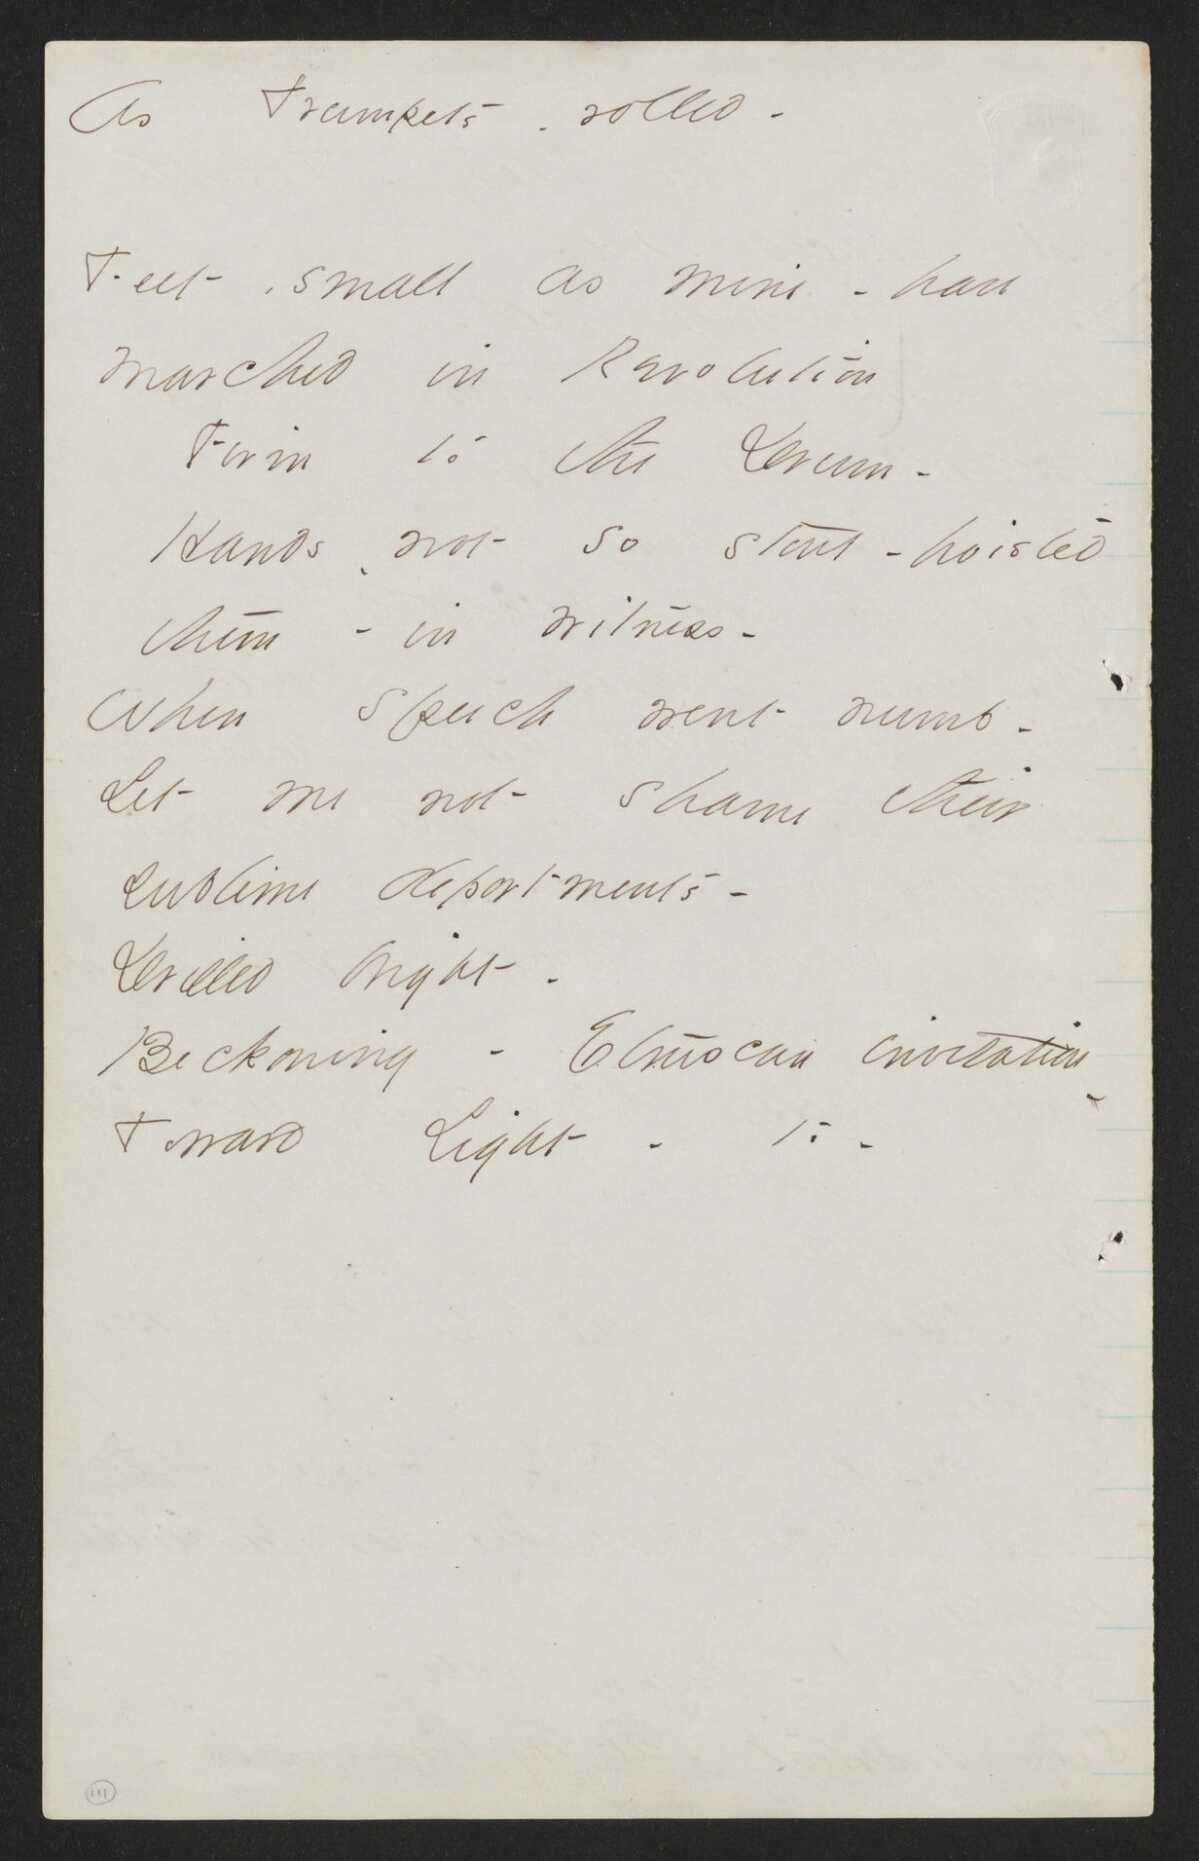 As Trumpets - rolled -
Feet, small as mine - have
marched in Revolution
Firm to the Drum -
Hands, not so stout - hoisted
them - in witness -
When Speech went numb -
Let me not shame their
sublime deportments -
Drilled bright -
Beckoning - Etruscan invitation -
Toward Light - to -